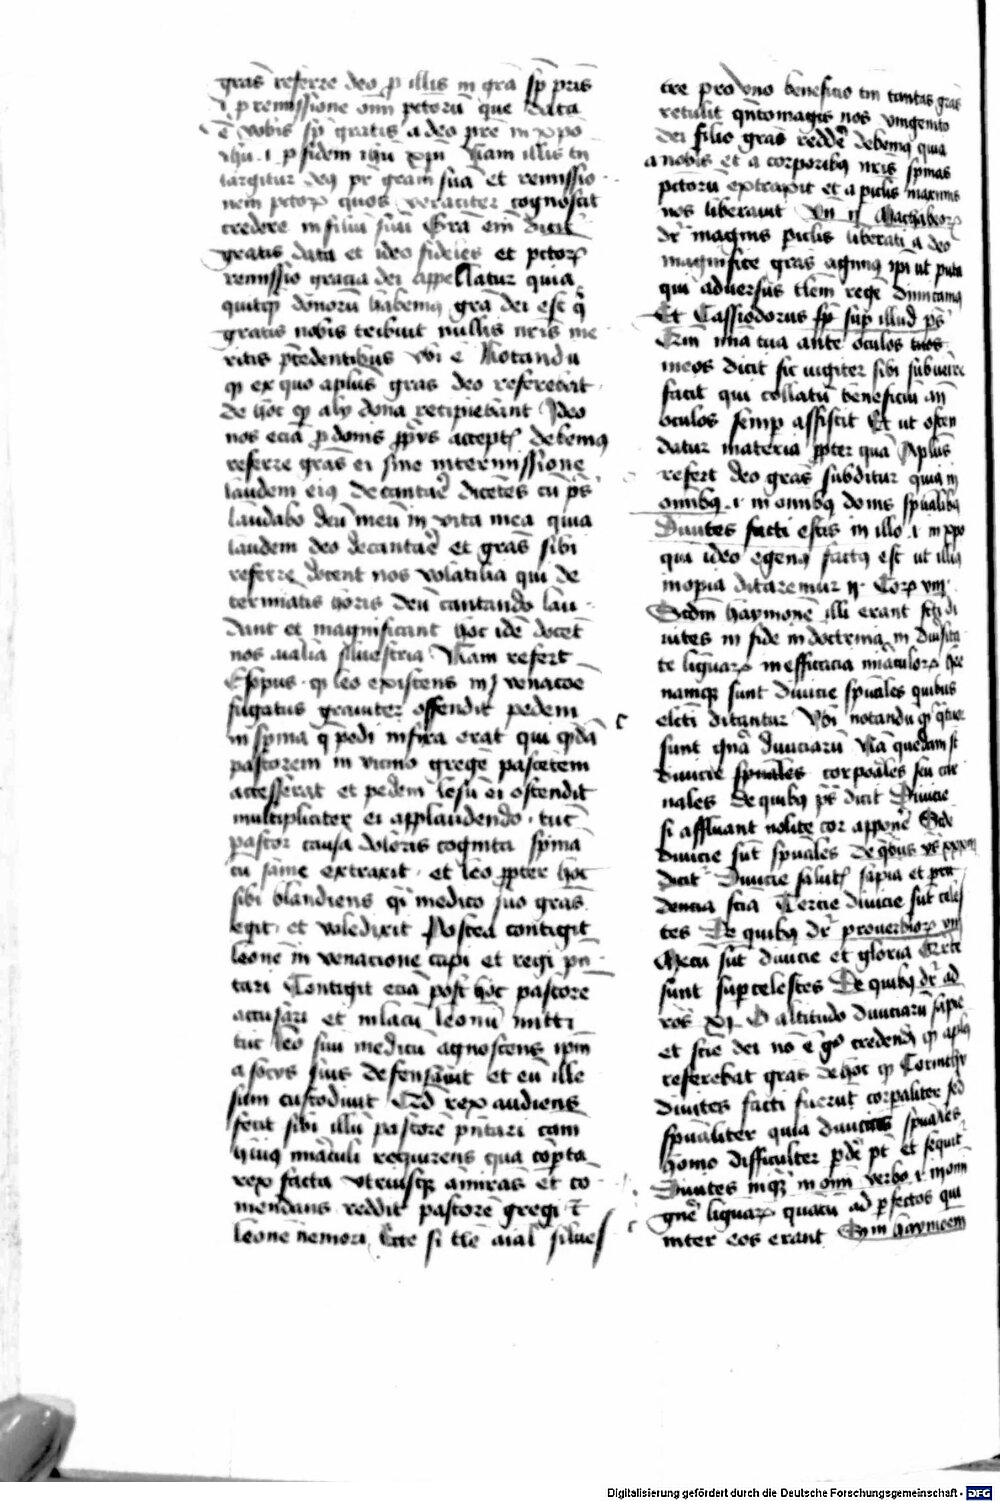 gras referre deo p illis in gra sp pris
i p remissione oim pctoru que data
e vobis sp gratis a deo pre in xpo
ihu .i. p fidem ihu xpi Nam illis tn
largitur deus pr gram sua et remissio
nem pctoru quos veraciter cognoscit
credere in filiu suu Gra em dicit
gratis data et ideo fideles et pctoru
remissio gracia dei appellatur quia
quitquid donoru habemus gra dei est q
gratis nobis tribuit nullis nris me
ritis precedentibus Ubi e Notandu
quod ex quo aplus gras deo referebat
de hoc quod aly dona recipiebant Ideo
nos ecia p donis pprys acceptis debemus
referre gras ei sine intermissione
laudem eius decantare dicetes cu ps
laudabo deu meu in vita mea quia
laudem deo decantare et gras sibi
referre docent nos volatilia qui de
terminatis horis deu cantando lau
dant et magnificant hoc ide docet
nos aialia silvestria Nam refert
Esopus quod leo existens in venacoe
fugatus graviter offendit pedem
in spina que pedi infixa erat qui quenda
pastorem in vicino grege pascetem
accesserat et pedem lesu ei ostendit
multipliciter ei applaudendo tuc
pastor causa doloris cognita spina
cu sanie extraxit et leo ppter hoc
sibi blandiens quasi medico suo gras
egit et valedixit Postea contigit
leone in venacione capi et regi pn
tari Contigit ecia post hoc pastore
accusari et in lacu leonu mitti
tuc leo suu medicu agnoscens ipm
a socys suis defensavit et eu ille
sum custodivit Qd rex audiens
fecit sibi illu pastore pntari cam
huius miraculi requirens qua coperta
rex facta utriusque admiras et co
mendans reddit pastore gregi et
leone nemori Ecce si tale aial silves
tre pro uno beneficio tm tantas gras
retulit qntomagis nos unigenito
dei filio gras reddere debemus quia
a nobis et a corporibus nris spinas
pctoru extraxit et a piclis maximis
nos liberavit Un ii Machabeoru
dr magnis piclis liberati a deo
magnifice gras agimus ipi ut puta
qui adversus talem rege dimicamus
Et Cassiodorus sp sup illud ps
Qm mia tua ante oculos
meos dicit sic iugiter sibi subvenire
facit qui collatu beneficiu an
oculos semp assistit Et ut osten
datur materia ppter qua Aplus
refert deo gras subditur quia in
omnibus .i. in omnibus donis spualibus
Divites facti estis in illo .i. in xpo
qui ideo egenus factus est ut illius
inopia ditaremur ii Cor viii
Scdm haymone illi erant fcti di
vites in fide in doctrina in diversita
te linguaru in efficacia miraculoru hee
namque sunt divicie spuales quibus
electi ditantur Ubi notandu quod
sunt gna diviciaru Na quedam st
divicie corporales seu car
nales de quibus ps dicit Divicie
si affluant nolite cor apponere Scde
divicie sut spuales de quibus
dicit Divicie salutis sapia et pru
dencia scia Tercie divicie sut celes
tes De quibus dr proverbioru viii
Mecu sut divicie et gloria
sunt supcelestes De quibus dr ad
ros xi O altitudo diviciaru sapie
et scie dei no e go credendu quod aplus
referebat gras de hoc quod Corinthy
divites facti fuerut corpaliter sed
spualiter quia divicias spuales
homo difficulter pdere pt et sequitr
Divites inquit in omi verbo .i. in omi
gne linguaru quatu ad pfectos qui
inter eos erant